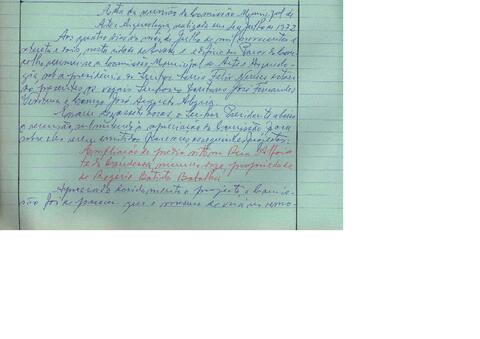 Acta da reunião da Comissão Municipal de
Arte e Arqueologia realizada em 4 de Julho de 1972
Aos quatro dias do mez de Julho de mil novecentos e
setenta e dois, nesta cidade de e edificio dos Paços do Conce-
lho, reuniu-se a Comissão Municipal de Arte e Arqueolo-
gia, sob a presidencia do Senhor Félix estan-
do presentes os vogais Senhores José Fernandes
Ventura e Conego José Augusto
horas, o Senhor Presidente abriu
a reunião, submetendo à apreciação da Comissão, para
sobre eles ser emitido parecer, os seguintes projectos:
Ampliação do prédio sito na Rua
de Bandeira, numero onze, propriedade
de Rogerio Batista Batalha
Apreciado devidamente o projecto, a Comis-
são foi de parecer que o mesmo deverá ser